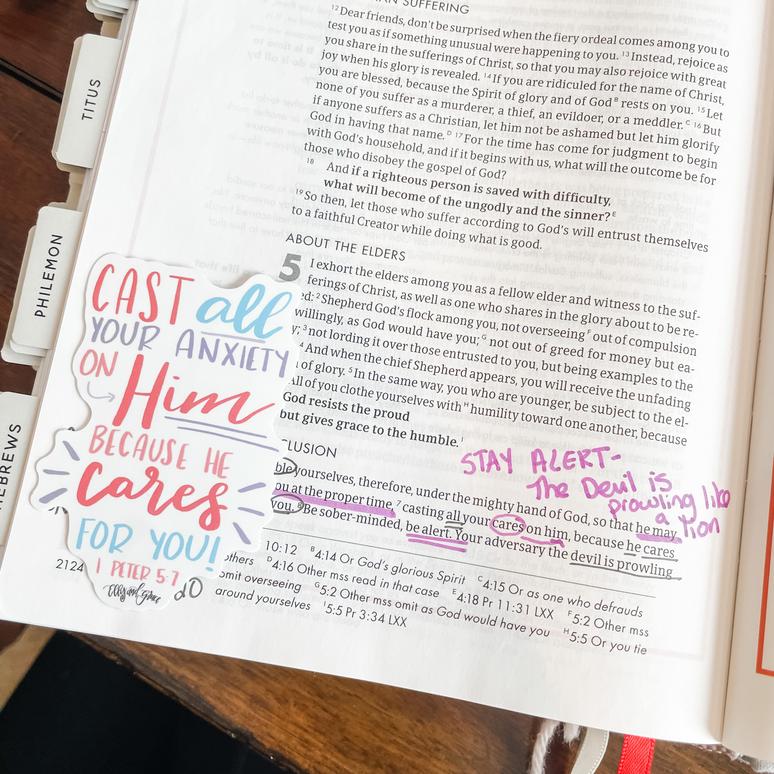 AN SUFFERING
12 Dear friends, don't be surprised when the fiery ordeal comes among you to
test you as if something unusual were happening to you. 13 Instead, rejoice as
you share in the sufferings of Christ, so that you may also rejoice with great
joy when his glory is revealed. 14 If you are ridiculed for the name of Christ,
you are blessed, because the Spirit of glory and of God B rests on you. 15 Let
none of you suffer as a murderer, a thief, an evildoer, or a meddler. C 16 But
if anyone suffers as a Christian, let him not be ashamed but let him glorify
God in having that name. D 17 For the time has come for judgment to begin
with God's household, and if it begins with us, what will the outcome be for
those who disobey the gospel of God?
18 And if a righteous person is saved with difficulty,
what will become of the ungodly and the sinner? E
19 So then, let those who suffer according to God's will entrust themselves
to a faithful Creator while doing what is good.
ABOUT THE ELDERS
5 I exhort the elders among you as a fellow elder and witness to the suf-
ferings of Christ, as well as one who shares in the glory about to be re-
ed: 2 Shepherd God's flock among you, not overseeing F out of compulsion
willingly, as God would have you; G not out of greed for money but ea-
y; 3 not lording it over those entrusted to you, but being examples to the
4 And when the chief Shepherd appears, you will receive the unfading
of glory. 5 In the same way, you who are younger, be subject to the el-
ll of you clothe yourselves with H humility toward one another, because
God resists the proud
but gives grace to the humble. I
CLUSION
ble yourselves, therefore, under the mighty hand of God, so that he may
ou at the proper time, 7 casting all your cares on him, because he cares
you. 8 Be sober-minded, be alert. Your adversary the devil is prowling
STAY ALERT-
The Devil is
prowling like
a lion
10:12 B 4:14 Or God's glorious Spirit C 4:15 Or as one who defrauds
others D 4:16 Other mss read in that case E 4:18 Pr 11:31 LXX F 5:2 Other mss
omit overseeing G 5:2 Other mss omit as God would have you H 5:5 Or you tie
around yourselves I 5:5 Pr 3:34 LXX
2124
CAST all
YOUR ANXIETY
ON Him
BECAUSE HE
cares
FOR YOU!
1 PETER 5:7
TITUS
PHILEMON
HEBREWS